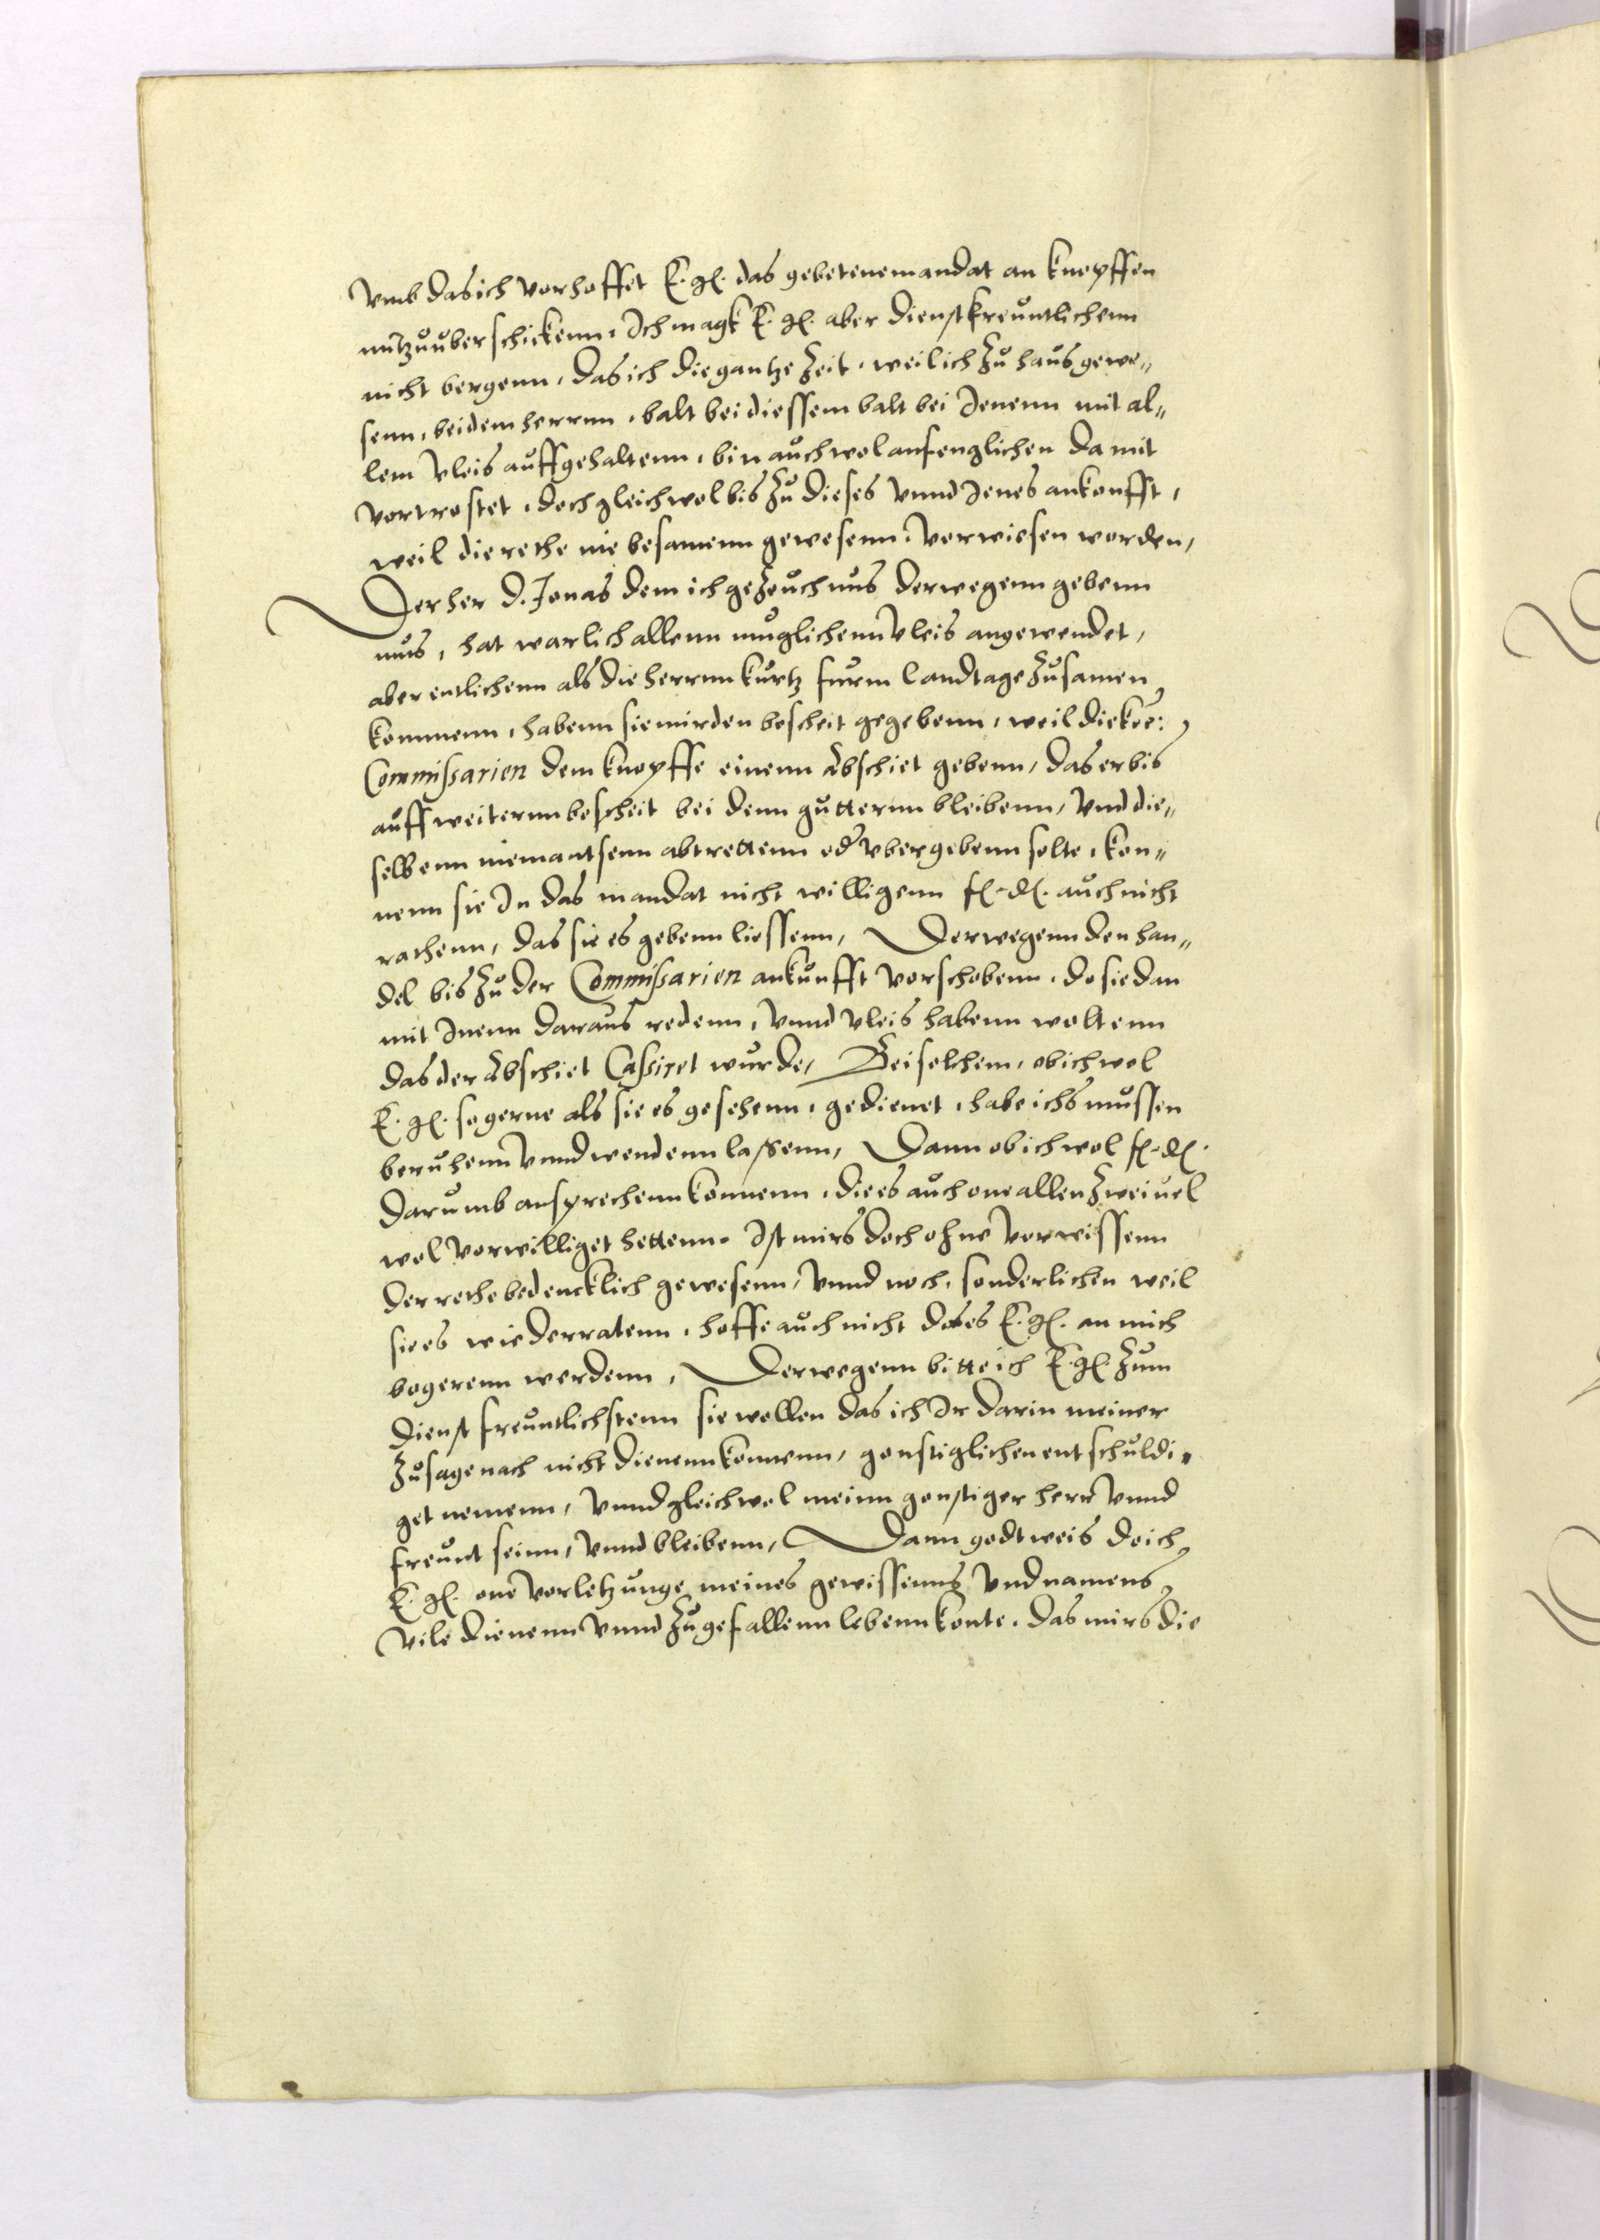 vmb das ich vorhoffet E. g. das gebetene mandat an knopffen
mitzuuberschickenn, Ich magk E. g. aber dienstfreuntlichenn
nicht bergenn, das ich die gantze Zeit, weil ich Zu haus gewe„
senn, bei dem herrnn, balt bei diessem balt bei Jenenn mit al„
lem vleis auffgehaltenn, bin auch wol anfenglichen da mit
vortrostet, doch gleichwol bis Zu dieses vnnd Jenes ankonfft,
weil die rethe nie besamenn gewesenn, vorwiesen worden,
Der her D. Jonas dem ich geZeuchnus derwegenn gebenn
mus, hat warlich allenn muglichenn vleis angewendet,
aber entlichenn als die herrnn kurtz furm Landtage Zusamen
kommenn, habenn sie mir den bescheit gegebenn, weil die
Commissarien dem knopffe einenn Abschiet gebenn, das er bis
auff weiternn bescheit bei denn gutternn bleibenn, vnd die„
selbenn niemantsenn abtrettenn oder vbergebenn solte, kon„
nenn sie In das mandat nicht willigenn f. d. auch nicht
rathenn, das sie es gebenn liessenn, Derwegenn den han„
del bis Zu der Commissarien ankunfft vorschobenn, do sie dan
mit Inenn daraus redenn, vnnd vleis habenn woltenn
das der Abschiet Cassiret wurde, Bei solchem, ob ich wol
E. g. so gerne als sie es gesehenn, gedienet, habe ichs mussen
beruhenn vnnd wendenn lassenn, Dann ob ich wol f. d.
darumb ansprechenn konnenn, die es auch one allen Zweiuel
wol vorwilliget hettenn, Ist mirs doch ohne vorwissenn
der rethe bedencklich gewesenn, vnnd noch, sonderlichen weil
sie es wiederratenn, hoffe auch nicht das es E. g. an mich
begerenn werdenn, Derwegenn bitte ich E. g. Zum
dienst freuntlichstenn sie wollen das ich Ir darin meiner
Zusage nach nicht dienenn konnenn, gonstiglichen entschuldi„
get nemenn, vnnd gleichwol meinn gonstiger herr vnnd
freunt seinn, vnnd bleibenn, Dann godt weis do ich
E. g. one vorletzunge meines gewissenns vnd namens
vile dienenn vnnd Zu gefallenn lebenn konte, das mirs die